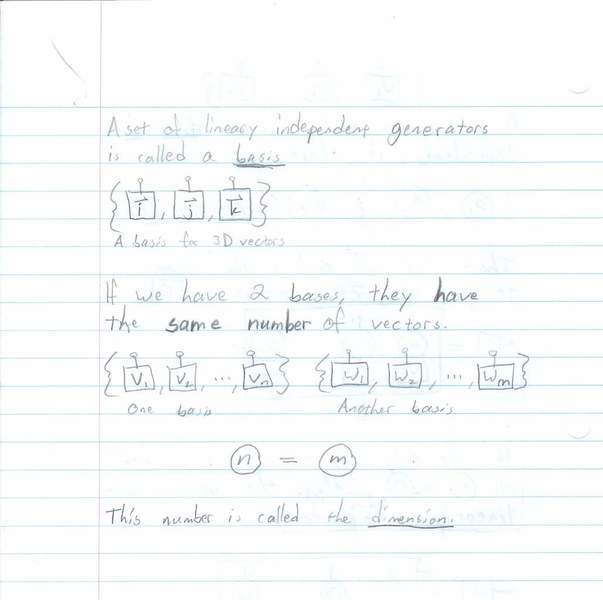 A set of lineary independent generators
is called a basis
{ i⃗, j⃗, k⃗ }
A basis for 3D vectors
If we have 2 bases, they have
the same number of vectors.
{ V₁, V₂, ..., Vn } { W₁, W₂, ..., Wm }
One basis Another basis
n = m
This number is called the dimension.